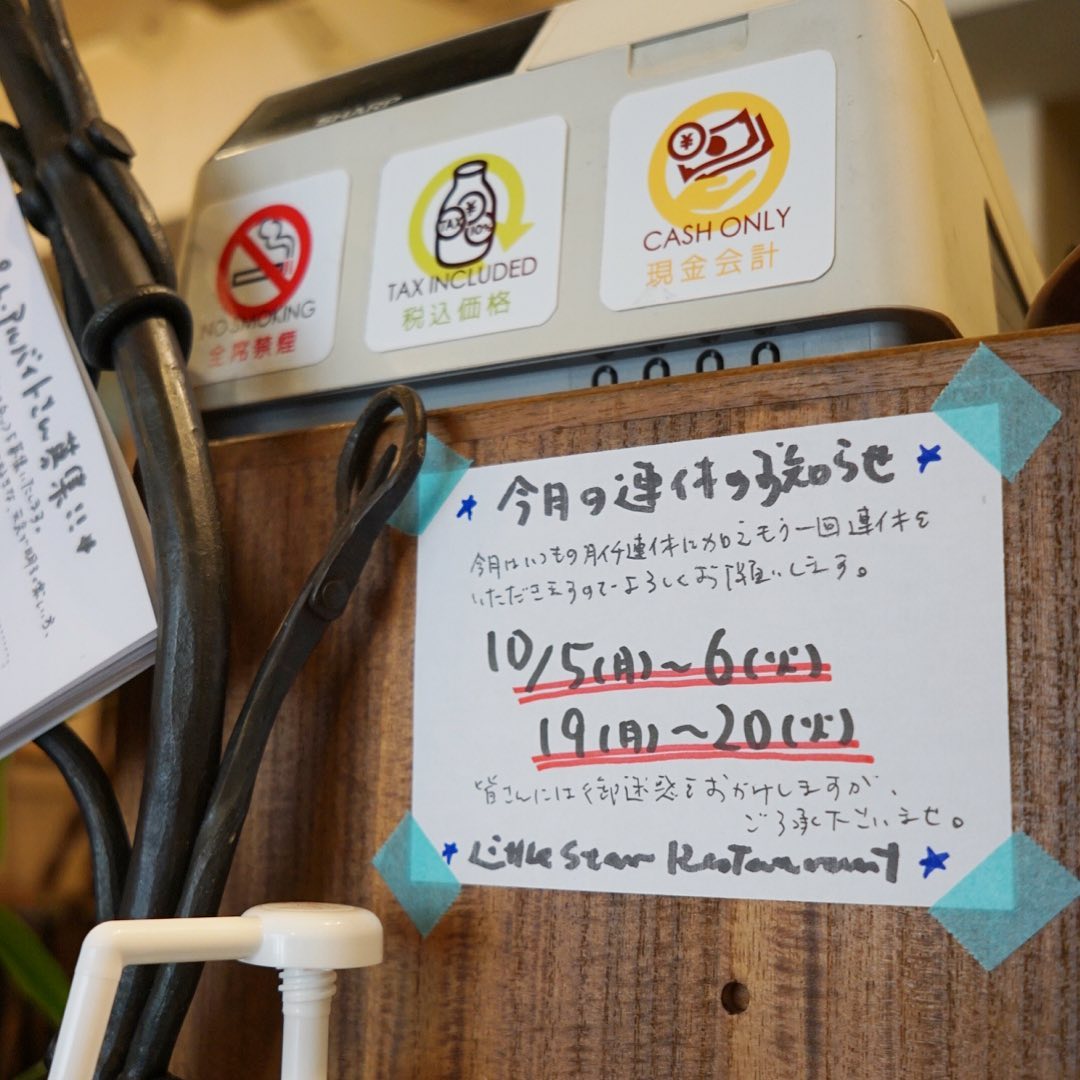 SHARP
NO SMOKING
全席禁煙
TAX ¥ 10%
TAX INCLUDED
税込価格
¥
CASH ONLY
現金会計
アルバイトさん募集!!
今月の連休のお知らせ
今月はいつもの月イチ連休に加えもう一回連休を
いただきますのでよろしくお願いします。
10/5(月)~6(火)
19(月)~20(火)
皆さんには御迷惑をおかけしますが、
ご了承下さいませ。
Little Star Restaurant